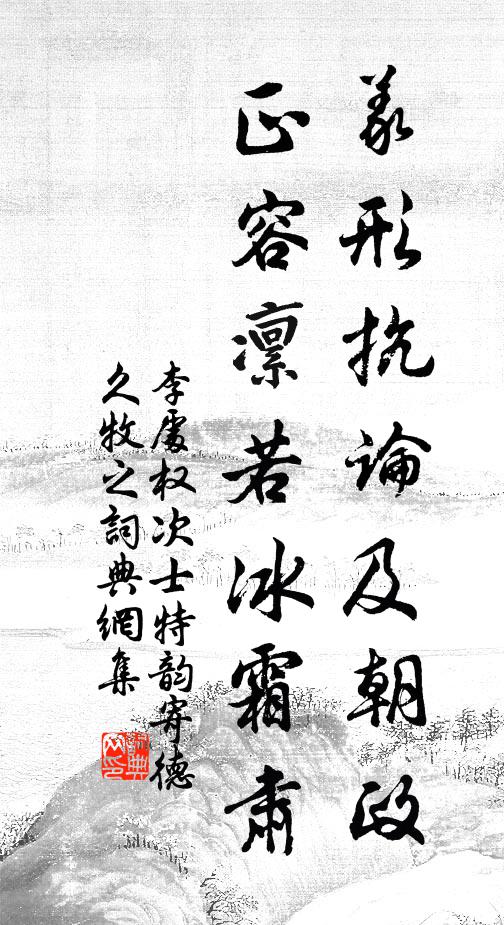 義形抗論及朝政
正容凛若冰霜肅
李處权次士特韵寄德
久牧之詞典網集